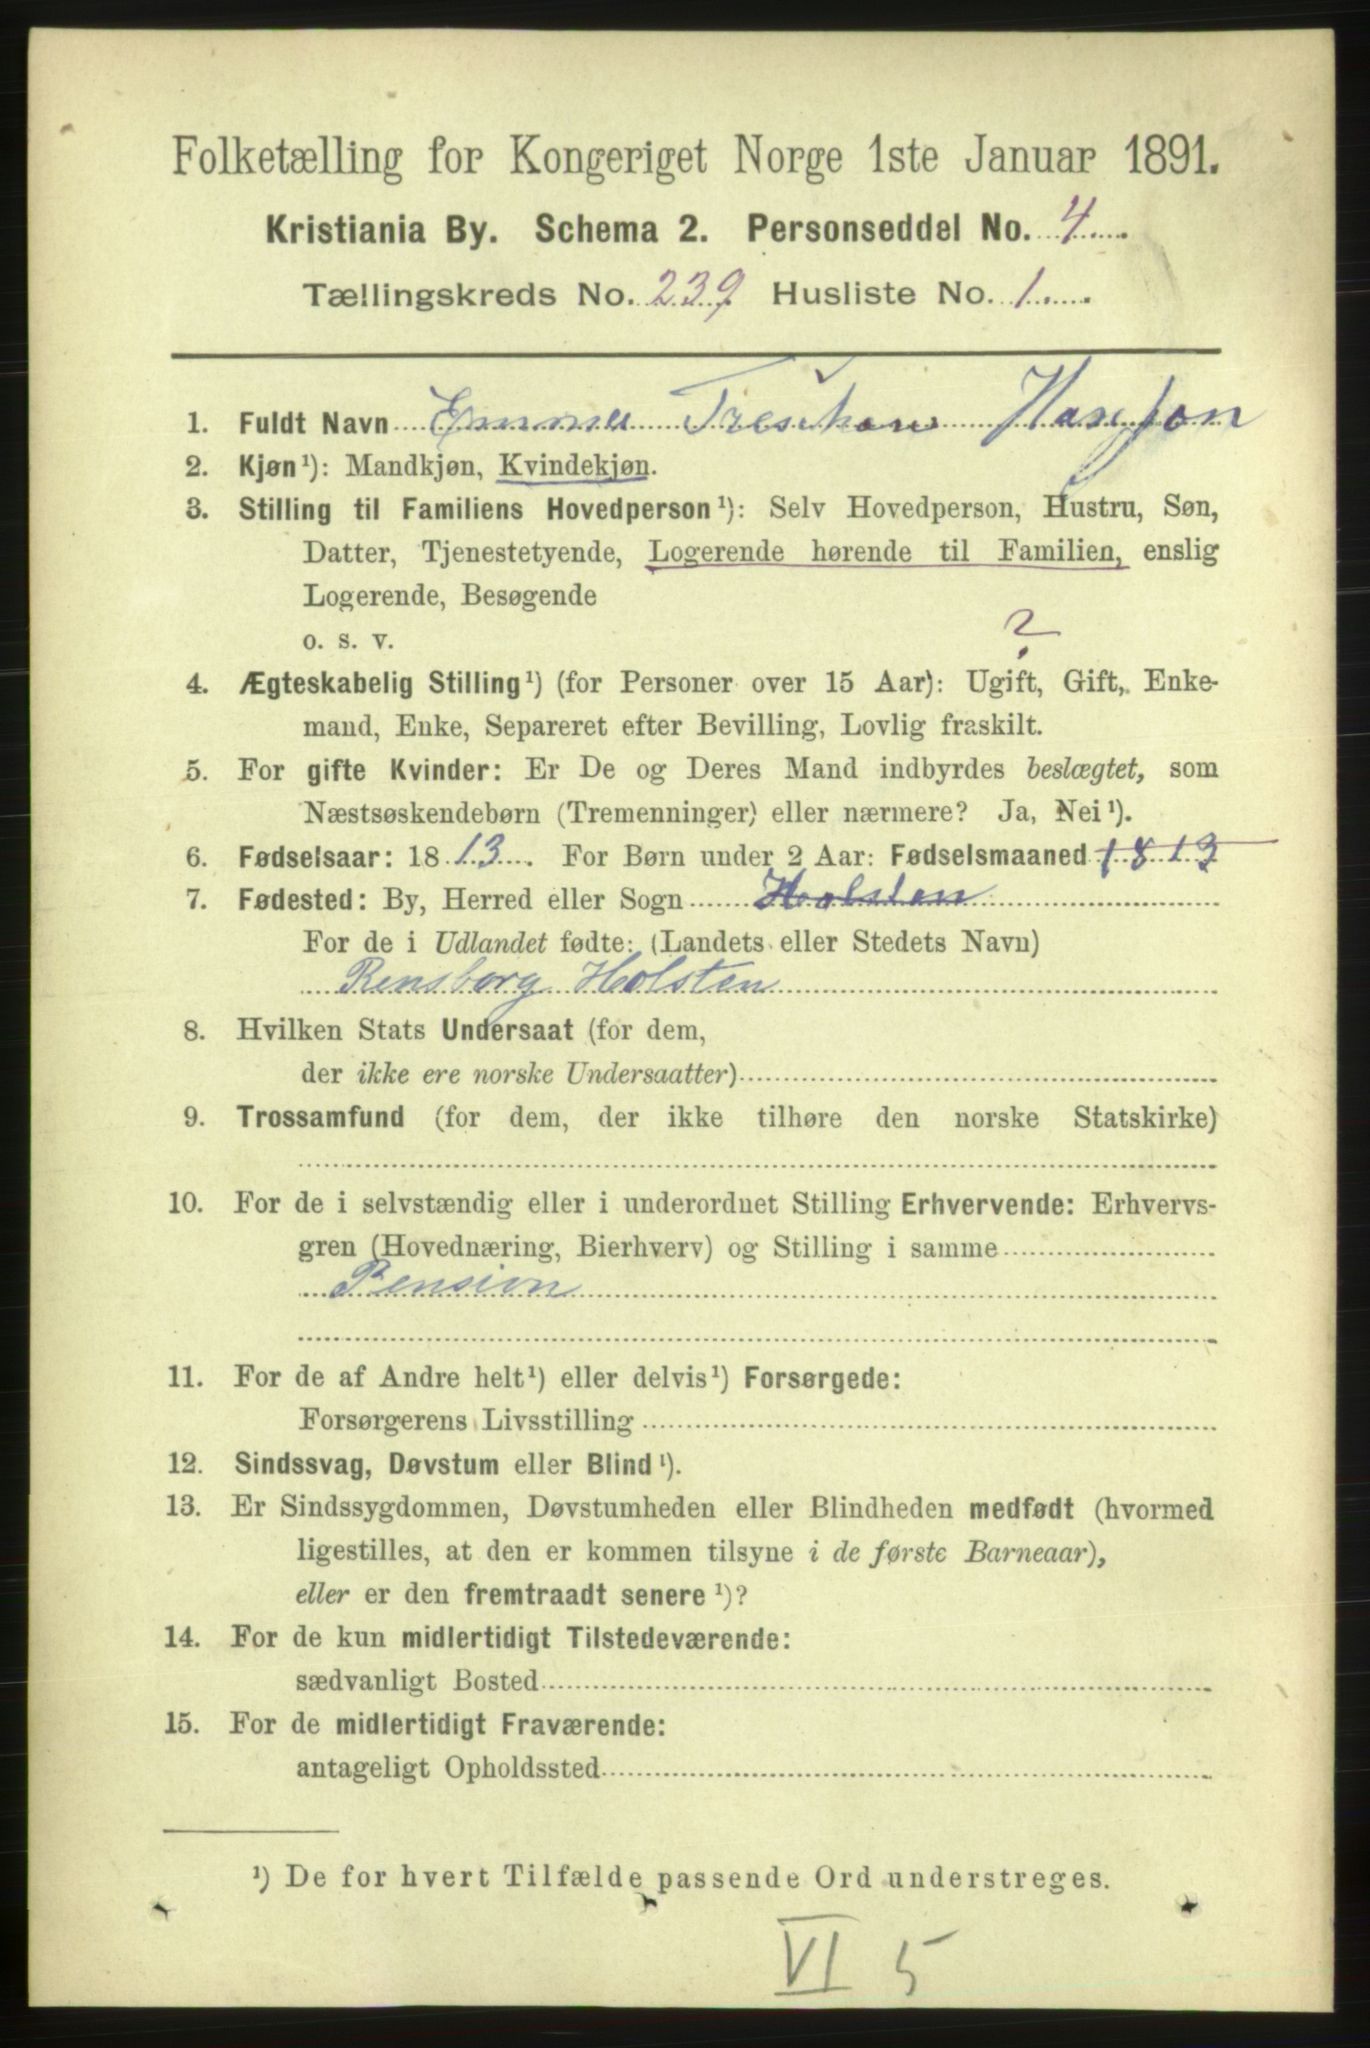 Folketælling for Kongeriget Norge 1ste Januar 1891.
Kristiania By. Schema 2. Personseddel No. 4
Tællingskreds No. 239 Husliste No. 1.
1. Fuldt Navn Emma Treschow
2. Kjøn¹): Mandkjøn, Kvindekjøn.
3. Stilling til Familiens Hovedperson¹): Selv Hovedperson, Hustru, Søn,
Datter, Tjenestetyende, Logerende hørende til Familien, enslig
Logerende, Besøgende
o. s. v.
?
4. Ægteskabelig Stilling¹) (for Personer over 15 Aar): Ugift, Gift, Enke-
mand, Enke, Separeret efter Bevilling, Lovlig fraskilt.
5. For gifte Kvinder: Er De og Deres Mand indbyrdes beslægtet, som
Næstsøskendebørn (Tremenninger) eller nærmere? Ja, Nei¹).
6. Fødselsaar: 1813. For Børn under 2 Aar: Fødselsmaaned 1813
7. Fødested: By, Herred eller Sogn Holsten
For de i Udlandet fødte: (Landets eller Stedets Navn)
Rensborg Holsten
8. Hvilken Stats Undersaat (for dem,
der ikke ere norske Undersaatter)
9. Trossamfund (for dem, der ikke tilhøre den norske Statskirke)
10. For de i selvstændig eller i underordnet Stilling Erhvervende: Erhvervs-
gren (Hovednæring, Bierhverv) og Stilling i samme
Pension
11. For de af Andre helt¹) eller delvis¹) Forsørgede:
Forsørgerens Livsstilling
12. Sindssvag, Døvstum eller Blind¹).
13. Er Sindssygdommen, Døvstumheden eller Blindheden medfødt (hvormed
ligestilles, at den er kommen tilsyne i de første Barneaar),
eller er den fremtraadt senere¹)?
14. For de kun midlertidigt Tilstedeværende:
sædvanligt Bosted
15. For de midlertidigt Fraværende:
antageligt Opholdssted
¹) De for hvert Tilfælde passende Ord understreges.
VI 5